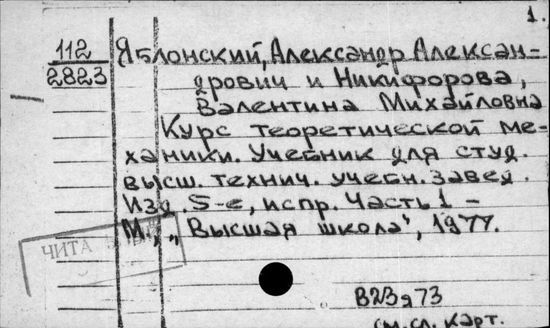 1.
112
2823
Яблонский, Александр Алексан-
дрович и Никифорова,
Валентина Михайловна
Курс теоретической ме-
ханики. Учебник для студ.
высш. технич. учебн. завед.
Изд. 5-е, испр. Часть 1 –
М., „Высшая школа", 1977.
ЧИТА
В23я73
см. сл. карт.